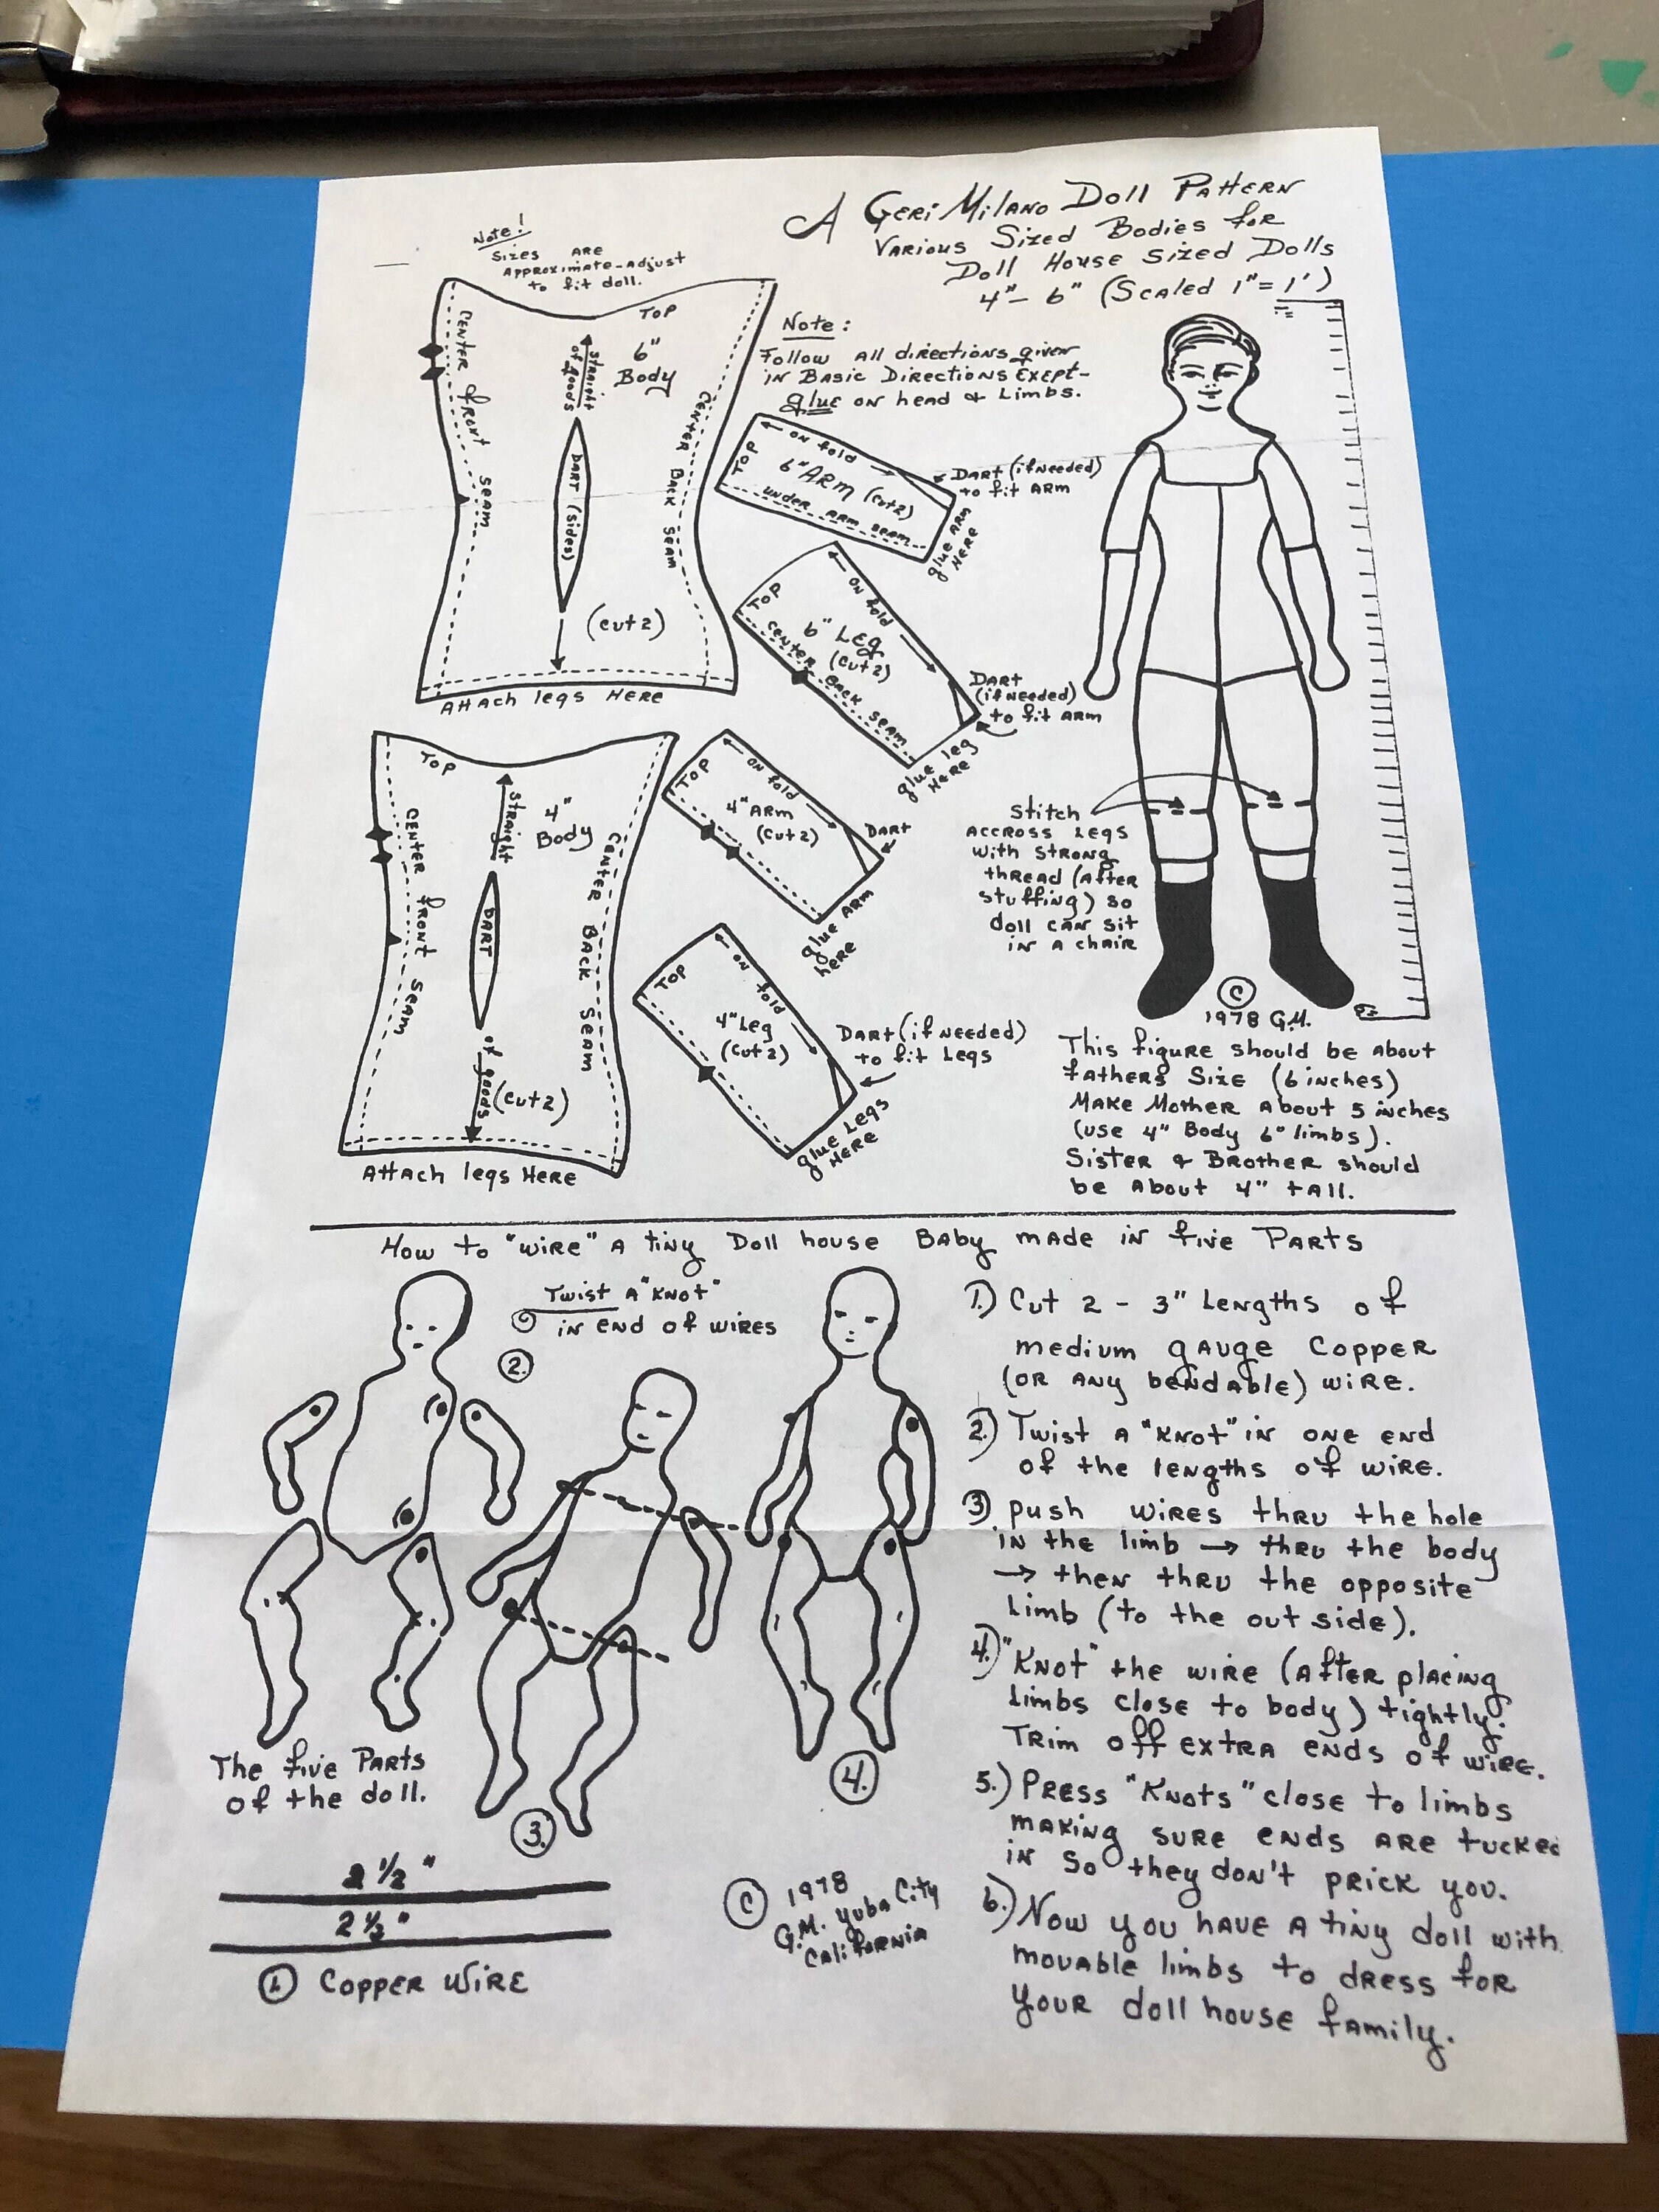 A Geri Milano Doll Pattern
Various Sized Bodies for
Doll House Sized Dolls
4"- 6" (Scaled 1"= 1')
Note!
Sizes are
Approximate-Adjust
to fit doll.
Top
6"
Body
Straight
of goods
Center front seam
Dart (sides)
Center Back Seam
(cut 2)
Attach legs Here
Note:
Follow all directions given
in Basic Directions Exept-
glue on head & Limbs.
on fold
Top
6" Arm (cut 2)
under arm seam
Dart (if needed)
to fit Arm
glue arm
Here
on fold
Top
6" Leg
(cut 2)
Center Back seam
Dart
(if needed)
to fit Arm
glue leg
Here
Top
Straight
4"
Body
Center front seam
Dart
Center Back Seam
of goods
(cut 2)
Attach legs Here
on fold
Top
4" Arm
(cut 2)
Dart
glue arm
here
on fold
Top
4" Leg
(cut 2)
Dart (if needed)
to fit Legs
glue Legs
Here
Stitch
accross Legs
with strong
thread (after
stuffing) so
doll can sit
in a chair
© 1978 G.M.
This figure should be about
fathers size (6 inches)
Make Mother about 5 inches
(use 4" Body 6" limbs).
Sister & Brother should
be about 4" tall.
How to "wire" a tiny Doll house Baby made in five Parts
Twist a "Knot"
in end of wires
2.
The five Parts
of the doll.
3.
4.
2 1/2"
2 1/2"
1. Copper Wire
© 1978
G.M. Yuba City
California
1.) Cut 2 - 3" Lengths of
medium gauge Copper
(or any bendable) wire.
2.) Twist a "Knot" in one end
of the lengths of wire.
3) push wires thru the hole
in the limb → thru the body
→ then thru the opposite
limb (to the out side).
4.) "Knot" the wire (after placing
limbs close to body) tightly.
Trim off extra ends of wire.
5.) Press "Knots" close to limbs
making sure ends are tucked
in so they don't prick you.
6.) Now you have a tiny doll with
movable limbs to dress for
your doll house family.